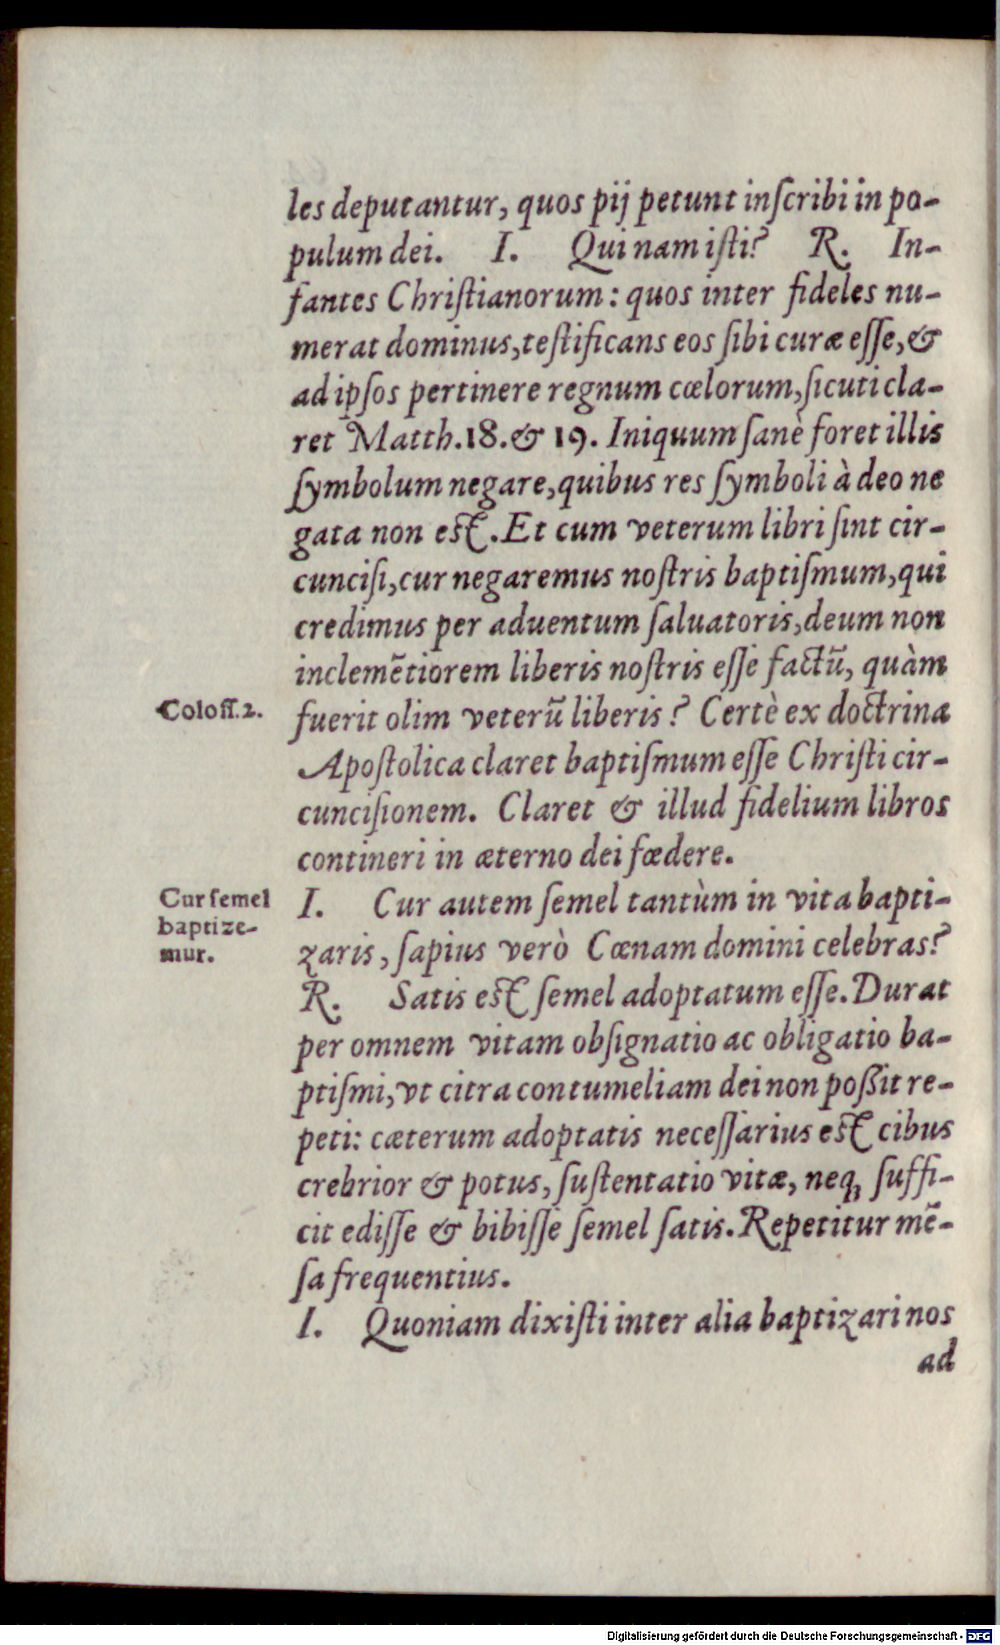 les deputantur, quos pij petunt inſcribi in po-
pulum dei. I. Quinam iſti? R. In-
fantes Chriſtianorum: quos inter fideles nu-
merat dominus, teſtificans eos ſibi curæ eſſe, &
ad ipſos pertinere regnum cœlorum, ſicuti cla-
ret Matth. 18. & 19. Iniquum ſanè foret illis
ſymbolum negare, quibus res ſymboli à deo ne
gata non eſt. Et cum veterum libri ſint cir-
cunciſi, cur negaremus noſtris baptiſmum, qui
credimus per aduentum ſaluatoris, deum non
inclemẽtiorem liberis noſtris eſſe factũ, quàm
Coloſſ. 2.
fuerit olim veterũ liberis? Certè ex doctrina
Apoſtolica claret baptiſmum eſſe Chriſti cir-
cunciſionem. Claret & illud fidelium libros
contineri in æterno dei fœdere.
Cur ſemel
baptize-
mur.
I. Cur autem ſemel tantùm in vita bapti-
zaris, ſapius verò Cœnam domini celebras?
R. Satis eſt ſemel adoptatum eſſe. Durat
per omnem vitam obſignatio ac obligatio ba-
ptiſmi, vt citra contumeliam dei non poßit re-
peti: cæterum adoptatis neceſſarius eſt cibus
crebrior & potus, ſuſtentatio vitæ, neq; ſuffi-
cit ediſſe & bibiſſe ſemel ſatis. Repetitur mẽ-
ſa frequentius.
I. Quoniam dixiſti inter alia baptizari nos
ad
Digitalisierung gefördert durch die Deutsche Forschungsgemeinschaft - DFG